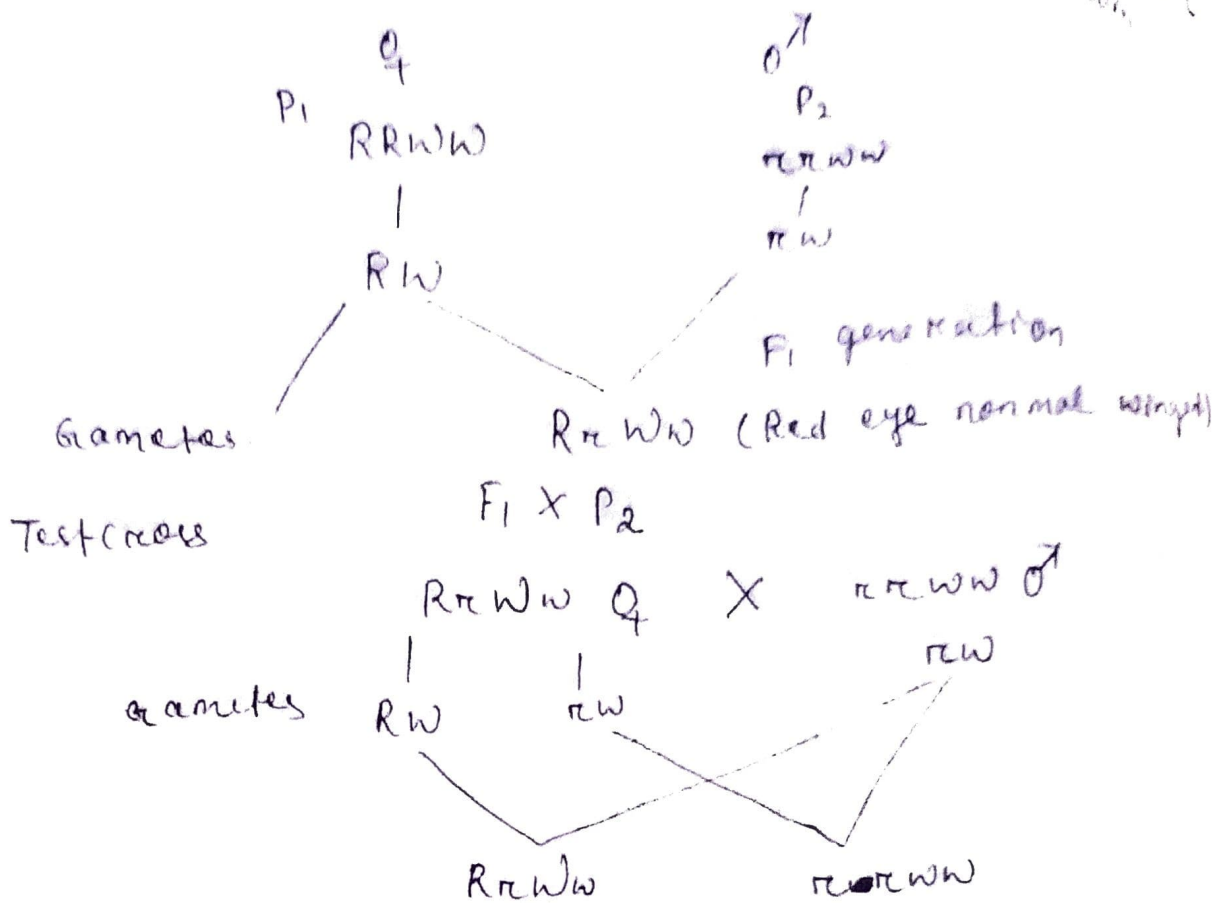 ♀ ♂
P1 P2
RRWW rrww
RW rw
F1 generation
Gametes RrWw (Red eye normal winged)
F1 X P2
Testcross
RrWw ♀ X rrww ♂
rw
Gametes RW rw
RrWw rrww